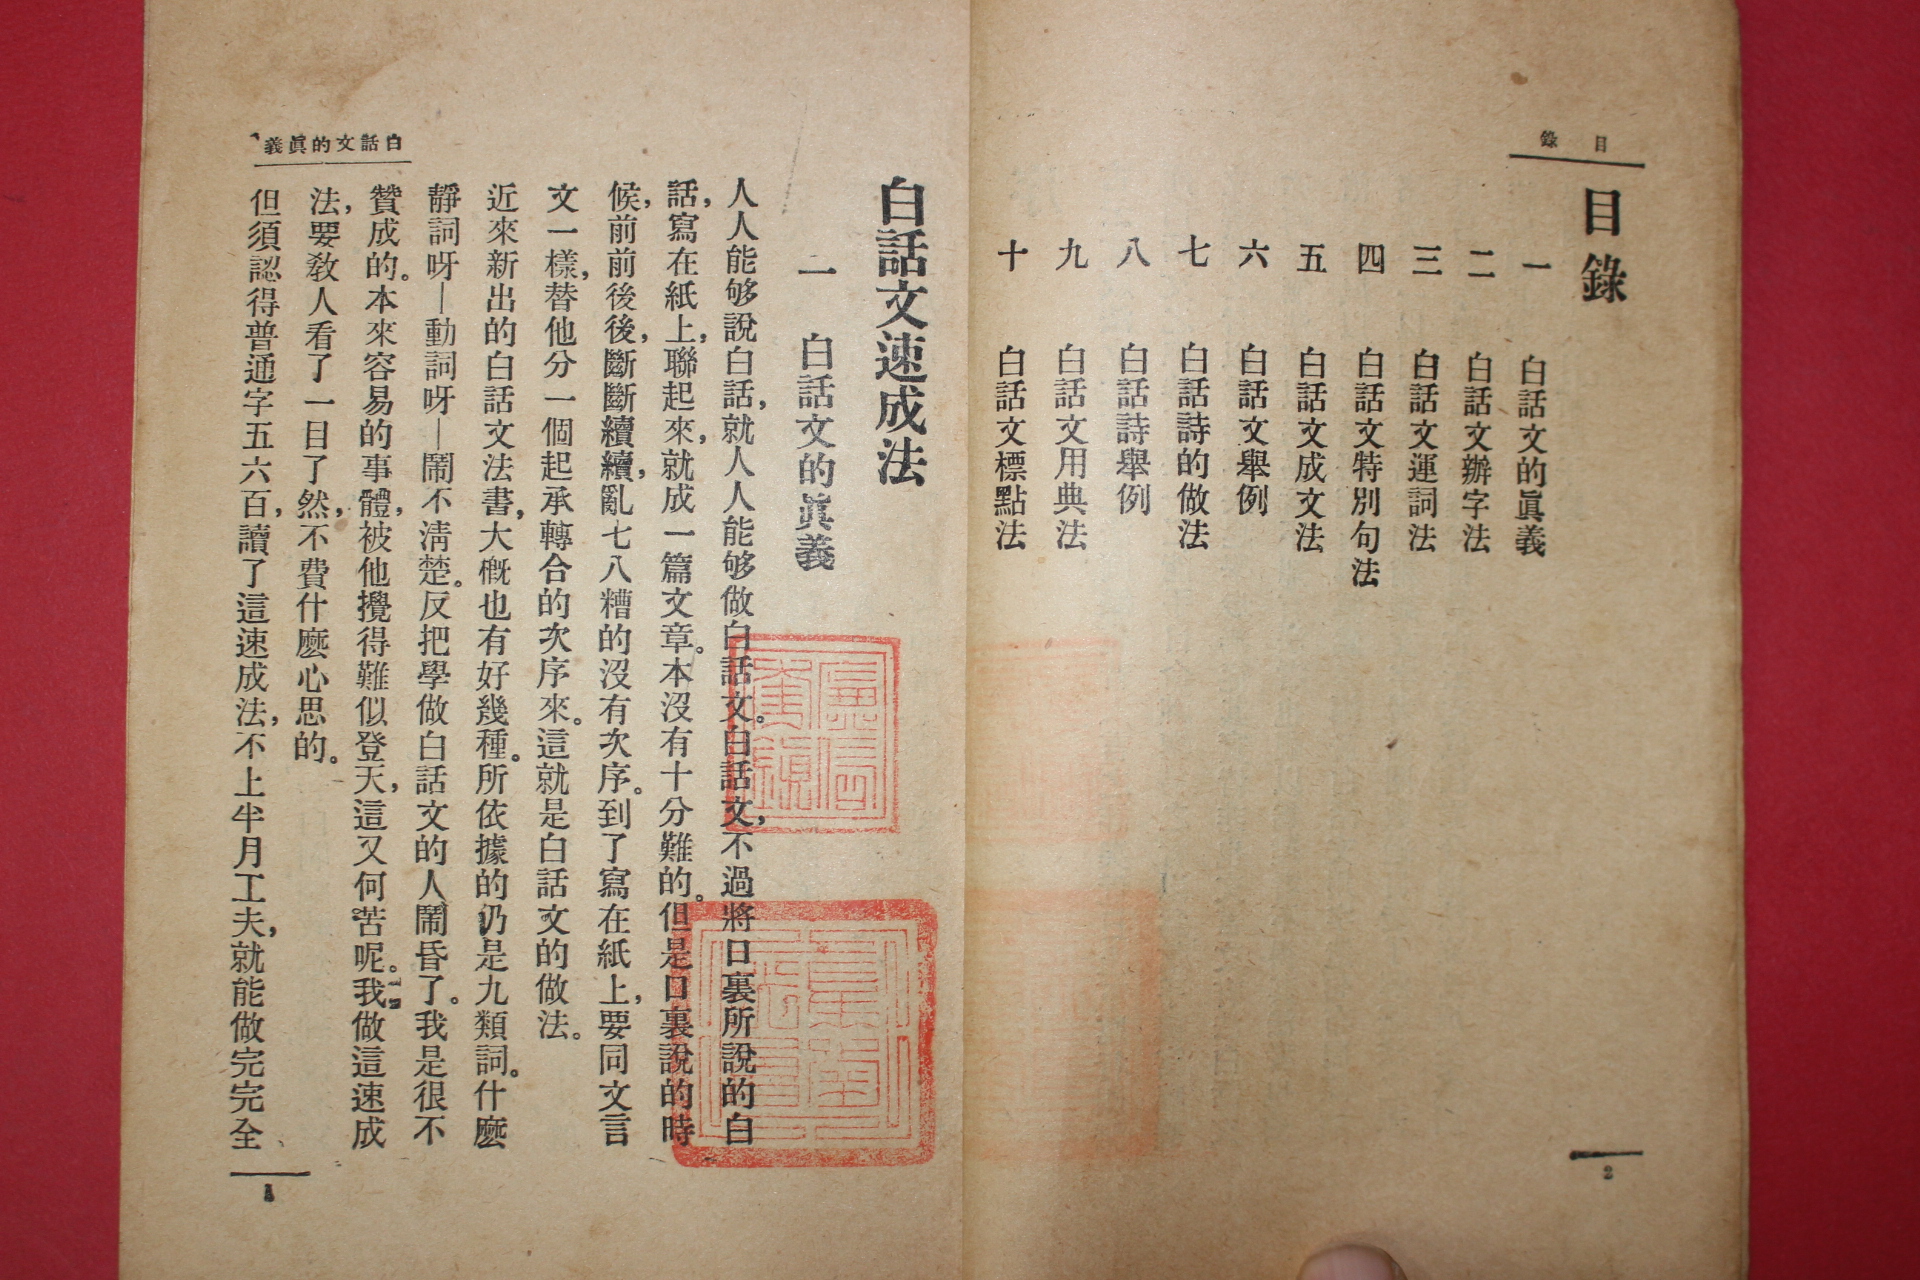 目錄
目錄
一　白話文的眞義
二　白話文辦字法
三　白話文運詞法
四　白話文特別句法
五　白話文成文法
六　白話文舉例
七　白話詩的做法
八　白話詩舉例
九　白話文用典法
十　白話文標點法
2
白話文速成法
一　白話文的眞義
人人能够說白話，就人人能够做白話文。白話文，不過將口裏所說的白
話，寫在紙上，聯起來，就成一篇文章。本沒有十分難的。但是口裏說的時
候，前前後後，斷斷續續，亂七八糟的沒有次序。到了寫在紙上，要同文言
文一樣，替他分一個起承轉合的次序來。這就是白話文的做法。
近來新出的白話文法書，大槪也有好幾種。所依據的仍是九類詞。什麽
靜詞呀—動詞呀—鬧不淸楚。反把學做白話文的人鬧昏了。我是很不
贊成的。本來容易的事體，被他攪得難似登天，這又何苦呢。我做這速成
法，要敎人看了一目了然，不費什麽心思的。
但須認得普通字五六百，讀了這速成法，不上半月工夫，就能做完完全
白話文的眞義